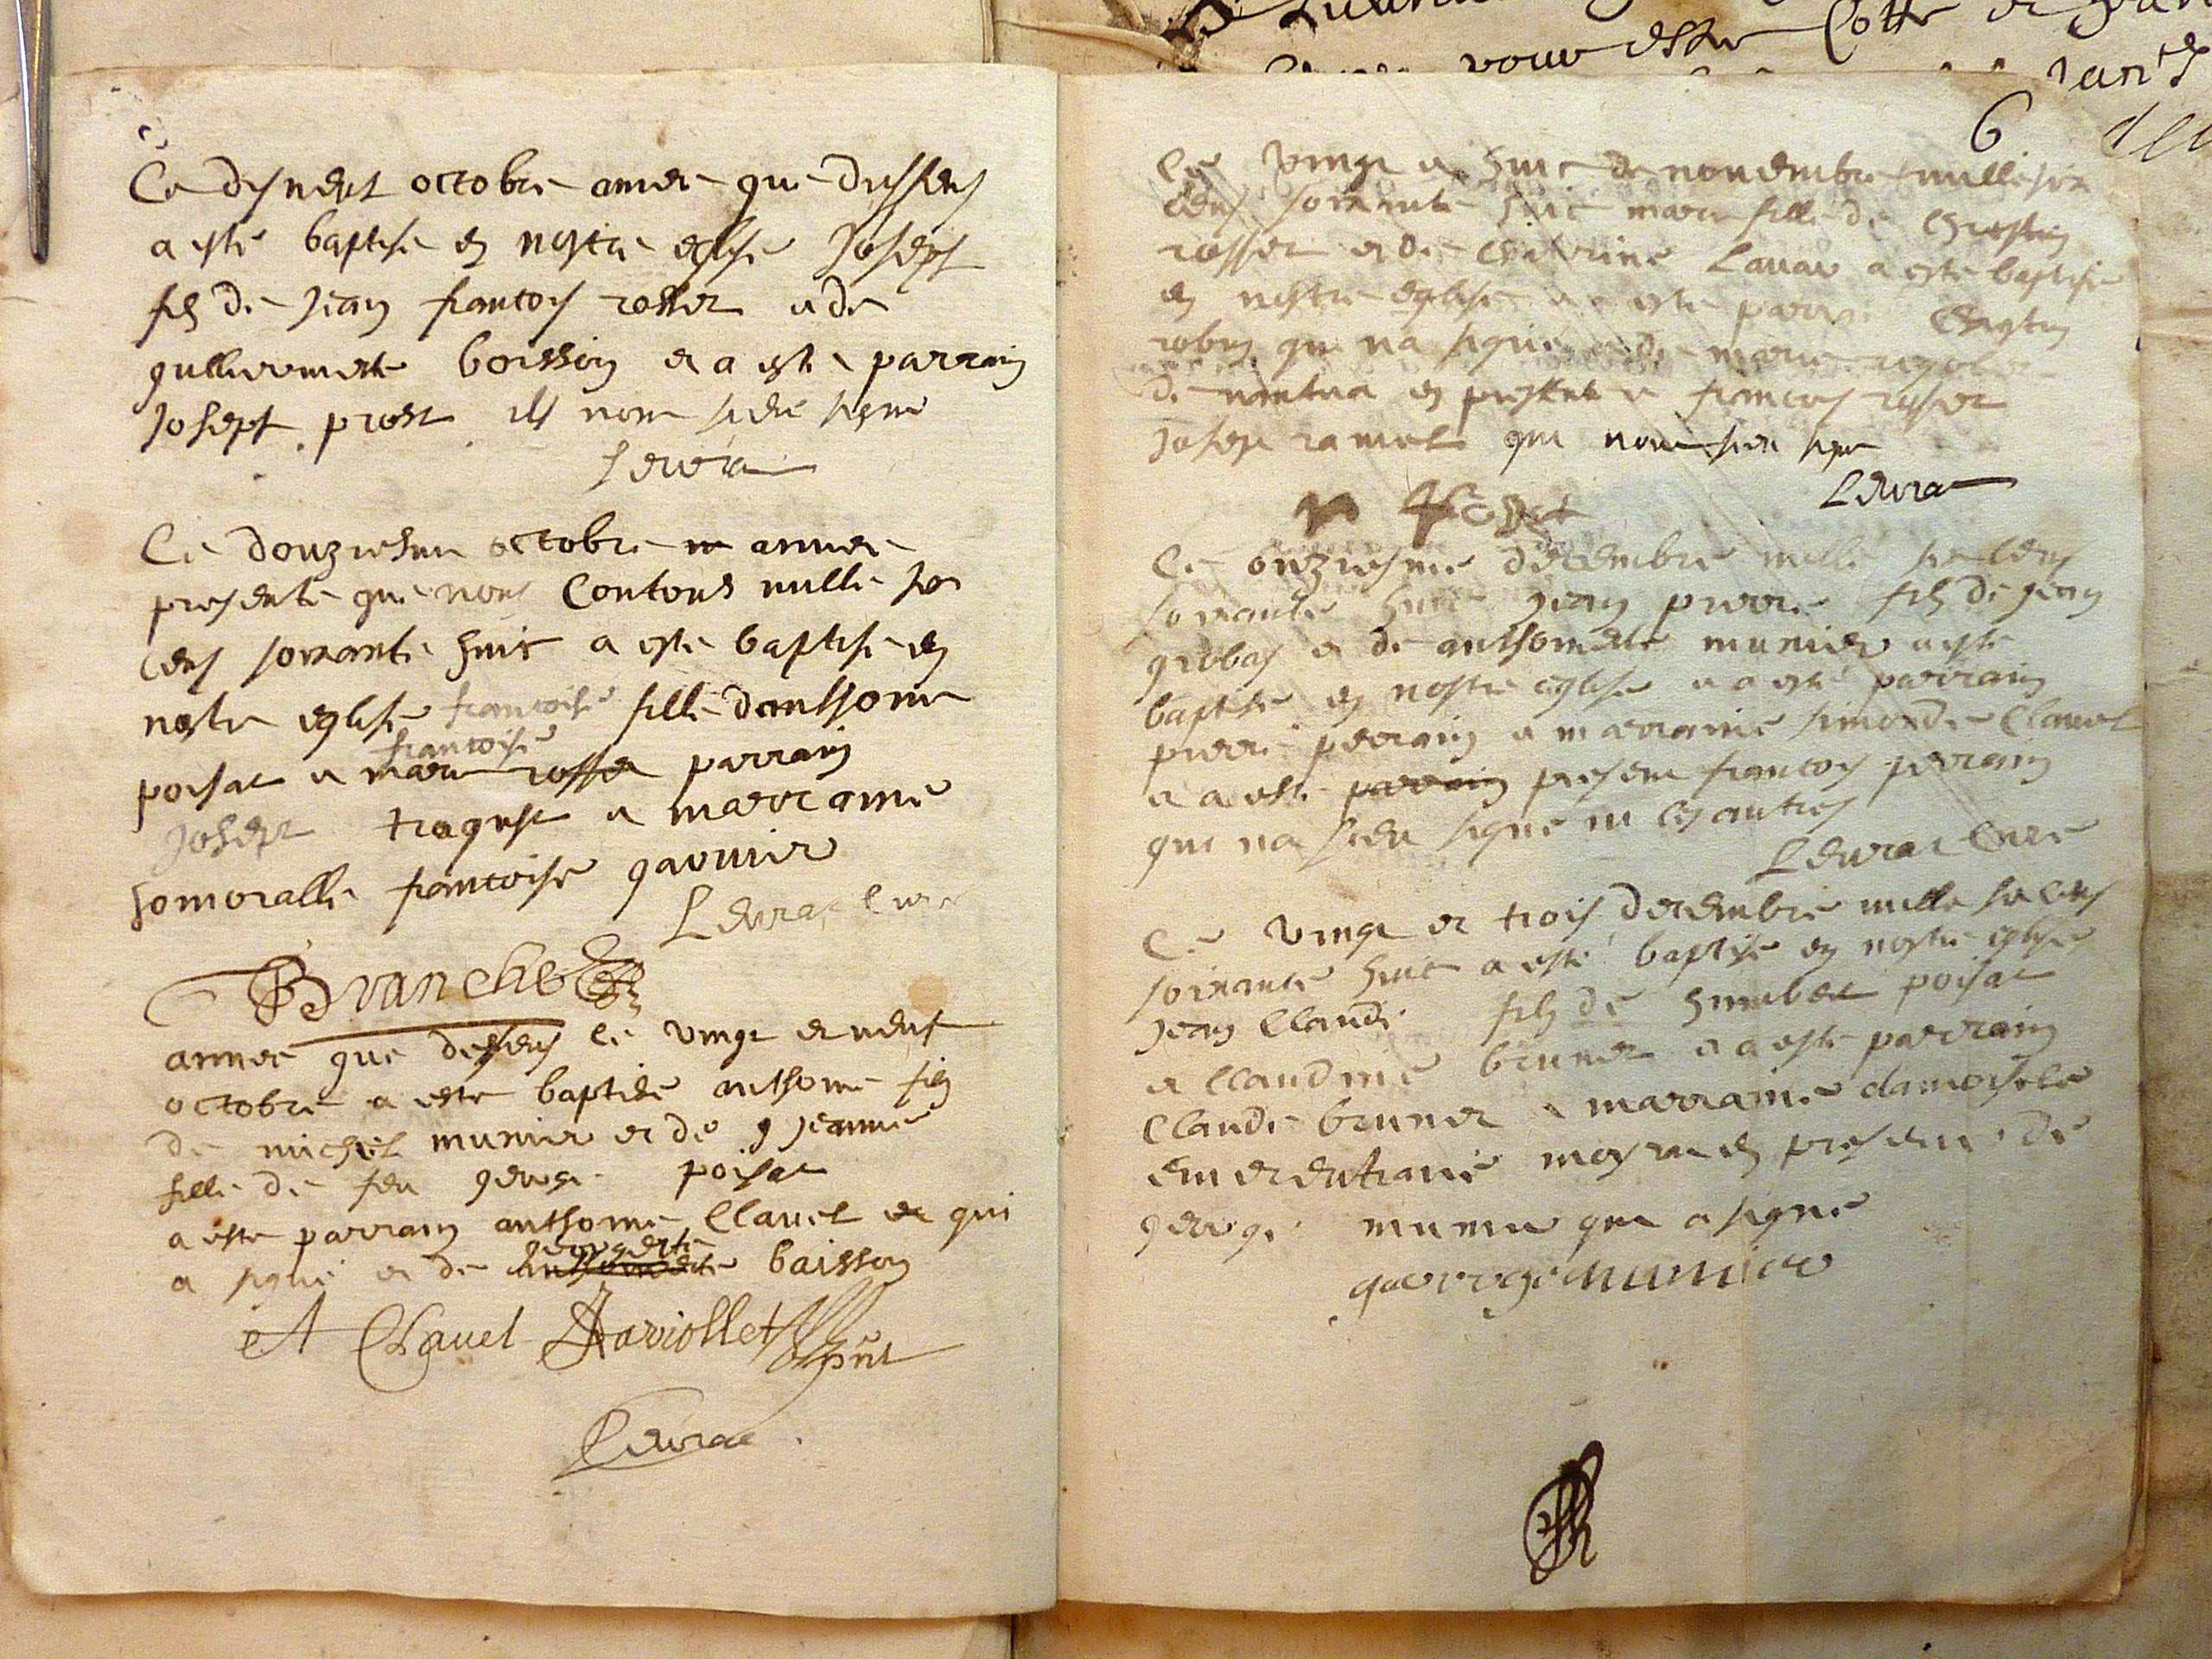 Ce disneuf octobre anee que dessus
a esté baptise en nostre eglise Joseph
fils de Jean francois rosset et de
guillermette boisson et a este parrain
Joseph prost ils nont sceu signer
Levrat
Ce douziesme octobre annee
presente que nous Contons mille six
cens soixante huit a este baptise en
nostre eglise francoise fille danthoine
francoise
poisat et marie rosset parrain
Joseph et marraine
honorable francoise garnier
Levrat Curé
Branchet
annee que dessus le vingt et neuf
octobre a este baptisé anthoine fils
de michel munier et de jeanne
fille de feu george poisat
a este parrain anthoine Clavel et qui
georgette
a signé et de anthoinette baisson
A Clavel Aariollet pnt
Levrat
6
Ce vingt et huit de novembre mille six
cens soixante huit marie fille de
rosset et de Caterine Lavar a esté baptisé
en nostre eglise et a este parrain
robin qui na signé et de marie
de nantua en presence francois rosset
Joseph ramel qui nont sceu signer
Levrat
Ce onziesme decembre mille six Cens
soixante huit jean pierre fils de jean
grobas et de anthoinette munier a este
baptise en nostre eglise et a este parrain
pierre perrain et marraine simonde Clavel
et a este parrain present francois perrain
qui na sceu signé ni les autres
Levrat Curé
Ce vingt et trois decembre mille six cens
soixante huit a esté baptisé en nostre eglise
jean Claude fils de humbert poisat
et Claudine brunet et a este parrain
Claude brunet et marraine damoiselle
en presence de
george munier qui a signé
george munier